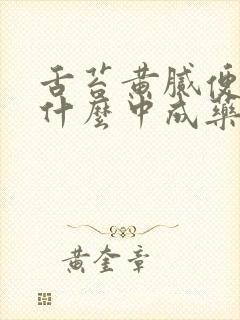 舌苔黄膩便
什麼中成藥
黄奎章